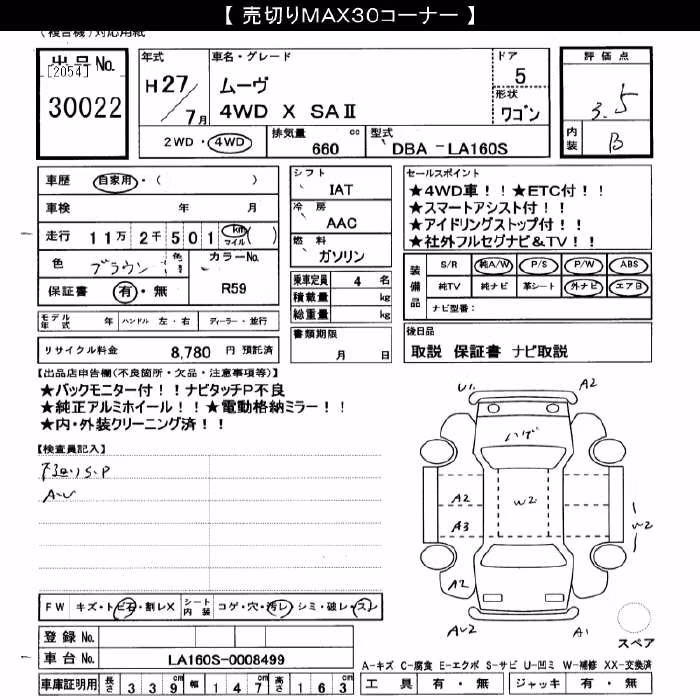 【 売切りMAX30コーナー 】
(複合機)対応用紙
出品No.
[2054]
30022
年式
H27/7月
車名・グレード
ムーヴ
4WD X SAⅡ
ドア
5
形状
ワゴン
評価点
3.5
内装
B
2WD・4WD
排気量
660 cc
型式
DBA -LA160S
車歴 自家用・( )
車検 年 月
走行 11万2千501 km マイル ( )
色 ブラウン 色
カラーNo.
R59
保証書 有・無
モデル年式 年 ハンドル 左・右 ディーラー・並行
リサイクル料金 8,780 円 預託済
シフト
IAT
冷房
AAC
燃料
ガソリン
乗車定員 4 名
積載量 kg
総重量 kg
書類期限
月 日
セールスポイント
★4WD車!!★ETC付!!
★スマートアシスト付!!
★アイドリングストップ付!!
★社外フルセグナビ&TV!!
装備品
S/R 純A/W P/S P/W ABS
純TV 純ナビ 革シート 外ナビ エアB
ナビ型番:
後日品
取説 保証書 ナビ取説
【出品店申告欄(不良箇所・欠品・注意事項等)】
★バックモニター付!!ナビタッチP不良
★純正アルミホイール!!★電動格納ミラー!!
★内・外装クリーニング済!!
【検査員記入】
S・P
A-U
U1 A2
ハゲ
A2
W2
A3
W2
A2
AU2 A1
スペア
FW キズ・トビ石・割レX シート内装 コゲ・穴・汚レ シミ・破レ・スレ
登録No.
車台No. LA160S-0008499
車庫証明用 長さ 339cm 幅 147cm 高さ 163cm
A-キズ C-腐食 E-エクボ S-サビ U-凹ミ W-補修 XX-交換済
工具 有・無 ジャッキ 有・無